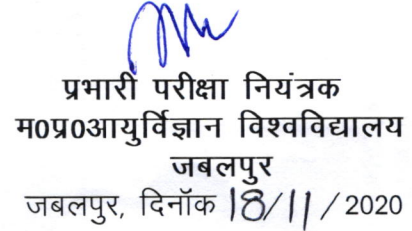 प्रभारी परीक्षा नियंत्रक
म0प्र0आयुर्विज्ञान विश्वविद्यालय
जबलपुर
जबलपुर, दिनॉक 18/11/2020